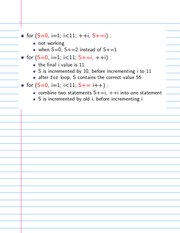 • for (S=0, i=1; i<11; ++i, S+=i) ;
• not working
• when S=0, S+=2 instead of S+=1
• for (S=0, i=1; i<11; S+=i, ++i) ;
• the final i value is 11
• S is incremented by 10, before incrementing i to 11
• after for loop, S contains the correct value 55.
• for (S=0, i=1; i<11; S+= i++) ;
• combine two statements S+=i, ++i into one statement
• S is incremented by old i, before incrementing i